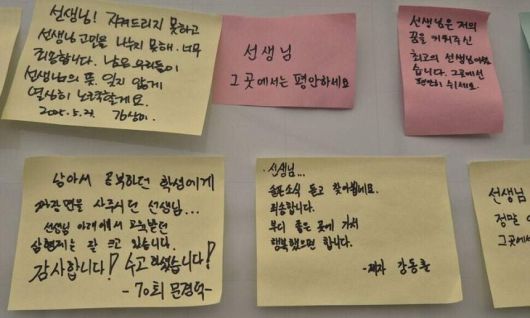 선생님! 지켜드리지 못하고
선생님 고민을 나누지 못해. 너무
죄송합니다. 남은 우리들이
선생님의 뜻, 잊지 않게
열심히 노력할게요.
2025. 5. 27.
선생님
그 곳에서는 평안하세요
선생님은 저의
꿈을 키워주신
최고의 선생님이셨
습니다. 그곳에선
편안히 쉬세요.
남아서 공부하던 학생에게
짜장면을 사주시던 선생님...
선생님 아래에서
삼형제는 잘 크고 있습니다.
감사합니다! 수고하셨습니다!
-70회 문경석-
선생님...
슬픈소식 듣고 찾아뵙네요.
죄송합니다.
부디 좋은 곳에 가셔
행복했으면 합니다.
-제자 강동훈
선생님
정말
그곳에서